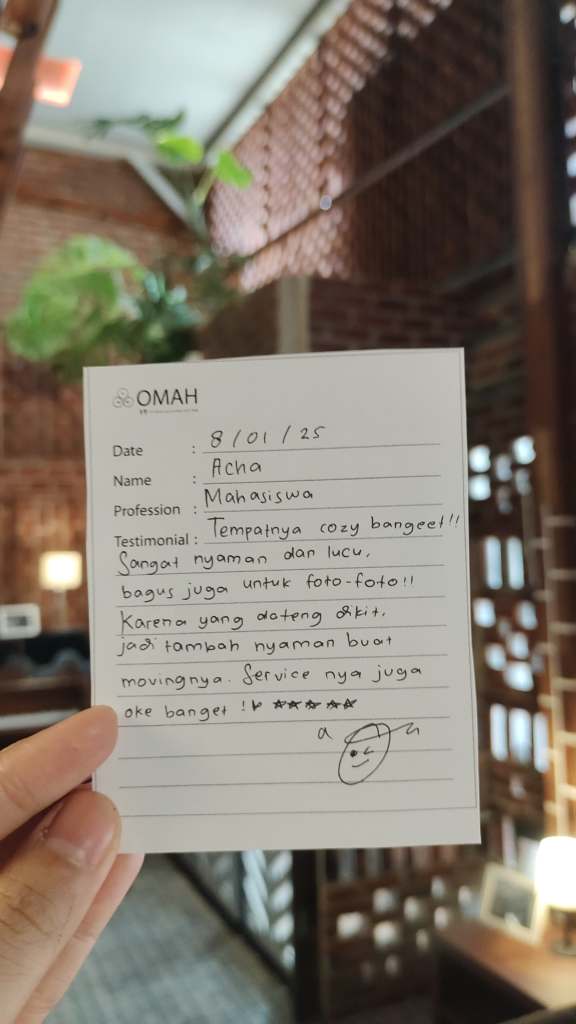 OMAH
Date : 8 / 01 / 25
Name : Acha
Profession : Mahasiswa
Testimonial : Tempatnya cozy bangeet!!
Sangat nyaman dan lucu,
bagus juga untuk foto-foto!!
Karena yang dateng dikit,
jadi tambah nyaman buat
movingnya. Service nya juga
oke banget !! ★★★★★